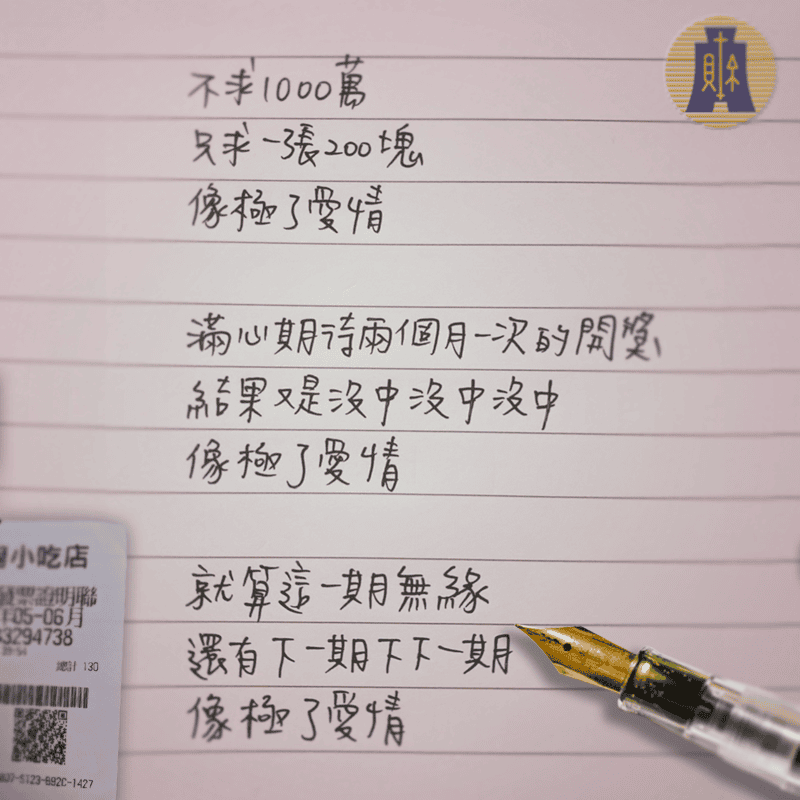 財
不求1000萬
只求一張200塊
像極了愛情
滿心期待兩個月一次的開獎
結果又是沒中沒中沒中
像極了愛情
就算這一期無緣
還有下一期下下一期
像極了愛情
小吃店
發票證明聯
年05-06月
33294738
總計 130
5123-B92C-1427